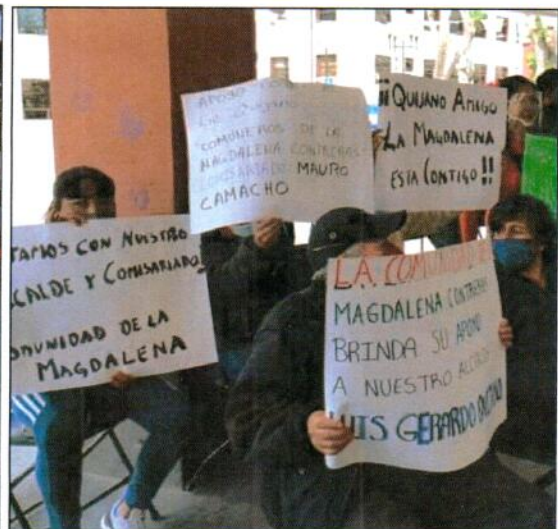 APOYO
"COMUNEROS DE LA
MAGDALENA CONTRERAS"
COMISARIADO MAURO
CAMACHO
¡¡ QUIJANO AMIGO
LA MAGDALENA
ESTA CONTIGO !!
TAMOS CON NUESTRO
CALDE Y COMISARIADO
OMUNIDAD DE LA
MAGDALENA
LA COMUNIDAD
MAGDALENA CONTRERAS
BRINDA SU APOYO
A NUESTRO
LUIS GERARDO